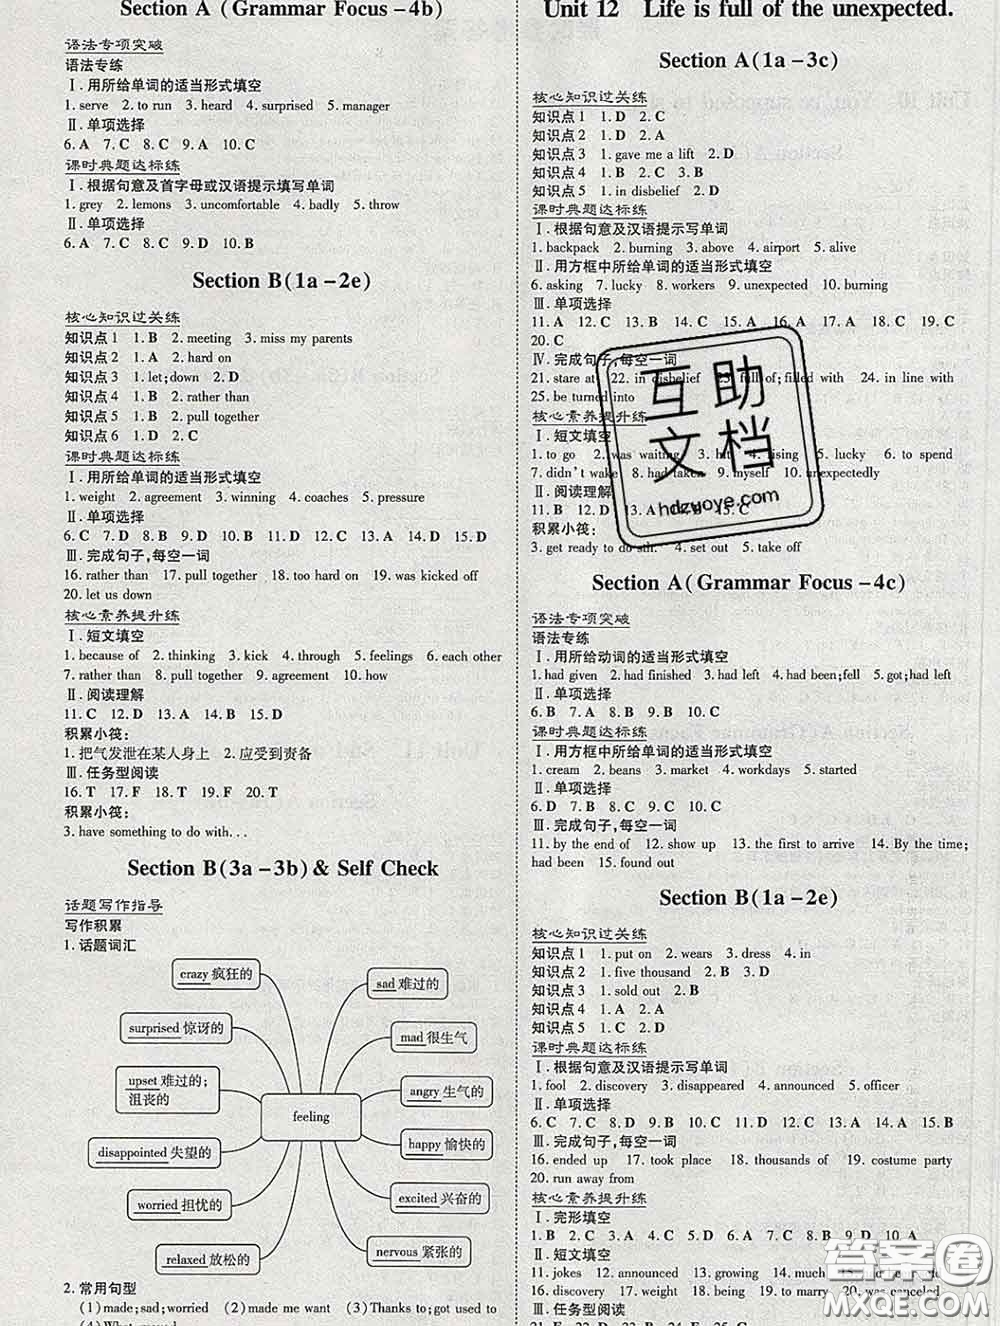 Section A (Grammar Focus－4b)
语法专项突破
语法专练
Ⅰ. 用所给单词的适当形式填空
1. serve 2. to run 3. heard 4. surprised 5. manager
Ⅱ. 单项选择
6. A 7. C 8. C 9. A 10. C
课时典题达标练
Ⅰ. 根据句意及首字母或汉语提示填写单词
1. grey 2. lemons 3. uncomfortable 4. badly 5. throw
Ⅱ. 单项选择
6. A 7. B 8. C 9. D 10. B
Section B(1a－2e)
核心知识过关练
知识点1 1. B 2. meeting 3. miss my parents
知识点2 1. A 2. hard on
知识点3 1. let;down 2. D
知识点4 1. B 2. rather than
知识点5 1. B 2. pull together
知识点6 1. D 2. C
课时典题达标练
Ⅰ. 用所给单词的适当形式填空
1. weight 2. agreement 3. winning 4. coaches 5. pressure
Ⅱ. 单项选择
6. C 7. D 8. B 9. D 10. D 11. A 12. C 13. D 14. D 15. D
Ⅲ. 完成句子,每空一词
16. rather than 17. pull together 18. too hard on 19. was kicked off
20. let us down
核心素养提升练
Ⅰ. 短文填空
1. because of 2. thinking 3. kick 4. through 5. feelings 6. each other
7. rather than 8. pull together 9. agreement 10. how
Ⅱ. 阅读理解
11. C 12. D 13. A 14. B 15. D
积累小筏:
1. 把气发泄在某人身上 2. 应受到责备
Ⅲ. 任务型阅读
16. T 17. F 18. F 19. T 20. T
积累小筏:
3. have something to do with...
Section B(3a－3b) & Self Check
话题写作指导
写作积累
1. 话题词汇
crazy 疯狂的
sad 难过的
surprised 惊讶的
mad 很生气
upset 难过的;
沮丧的
angry 生气的
feeling
disappointed 失望的
happy 愉快的
worried 担忧的
excited 兴奋的
relaxed 放松的
nervous 紧张的
2. 常用句型
(1)made;sad;worried (2)made me want (3)Thanks to;got used to
Unit 12 Life is full of the unexpected.
Section A(1a－3c)
核心知识过关练
知识点1 1. D 2. C
知识点2 1. D 2. A
知识点3 1. gave me a lift 2. D
知识点4 1. B 2. C 3. B
知识点5 1. in disbelief 2. D
课时典题达标练
Ⅰ. 根据句意及汉语提示写单词
1. backpack 2. burning 3. above 4. airport 5. alive
Ⅱ. 用方框中所给单词的适当形式填空
6. asking 7. lucky 8. workers 9. unexpected 10. burning
Ⅲ. 单项选择
11. A 12. C 13. B 14. C 15. A 16. A 17. A 18. C 19. C
20. C
Ⅳ. 完成句子,每空一词
21. stare at 22. in disbelief 23. full of;filled with 24. in line with
25. be turned into
核心素养提升练
Ⅰ. 短文填空
1. to go 2. was waiting 3. hit 4. rising 5. lucky 6. to spend
7. didn't wake 8. had taken 9. myself 10. unexpectedly
Ⅱ. 阅读理解
11. B 12. D 13. A 14. B 15. C
积累小筏:
3. get ready to do sth. 4. set out 5. take off
Section A(Grammar Focus－4c)
语法专项突破
语法专练
Ⅰ. 用所给动词的适当形式填空
1. had given 2. had finished 3. had left 4. had been;fell 5. got;had left
Ⅱ. 单项选择
6. B 7. A 8. B 9. B 10. C
课时典题达标练
Ⅰ. 用方框中所给单词的适当形式填空
1. cream 2. beans 3. market 4. workdays 5. started
Ⅱ. 单项选择
6. D 7. B 8. C 9. B 10. C
Ⅲ. 完成句子,每空一词
11. by the end of 12. show up 13. the first to arrive 14. By the time;
had been 15. found out
Section B(1a－2e)
核心知识过关练
知识点1 1. put on 2. wears 3. dress 4. in
知识点2 1. five thousand 2. B 3. D
知识点3 1. sold out 2. B
知识点4 1. A 2. A
知识点5 1. C 2. D
课时典题达标练
Ⅰ. 根据句意及汉语提示写单词
1. fool 2. discovery 3. disappeared 4. announced 5. officer
Ⅱ. 单项选择
6. D 7. D 8. C 9. B 10. C 11. D 12. B 13. C 14. A 15. B
Ⅲ. 完成句子,每空一词
16. ended up 17. took place 18. thousands of 19. costume party
20. run away from
核心素养提升练
Ⅰ. 完形填空
1. B 2. C 3. A 4. C 5. D 6. A 7. B 8. C 9. D 10. A
Ⅱ. 短文填空
11. jokes 12. announced 13. growing 14. much
16. discovery 17. weight 18. being 19. to marry 20. was canceled
Ⅲ. 任务型阅读
互助
文档
hdzuoye.com
答案圈
MXQE.COM